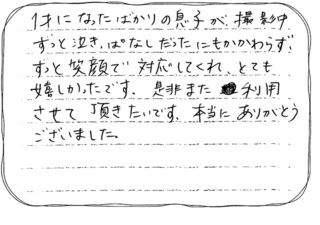 1才になったばかりの息子が、撮影中
ずっと泣きっぱなしだったにもかかわらず、
ずっと笑顔で対応してくれ、とても
嬉しかったです。是非また利用
させて頂きたいです。本当にありがとう
ございました。